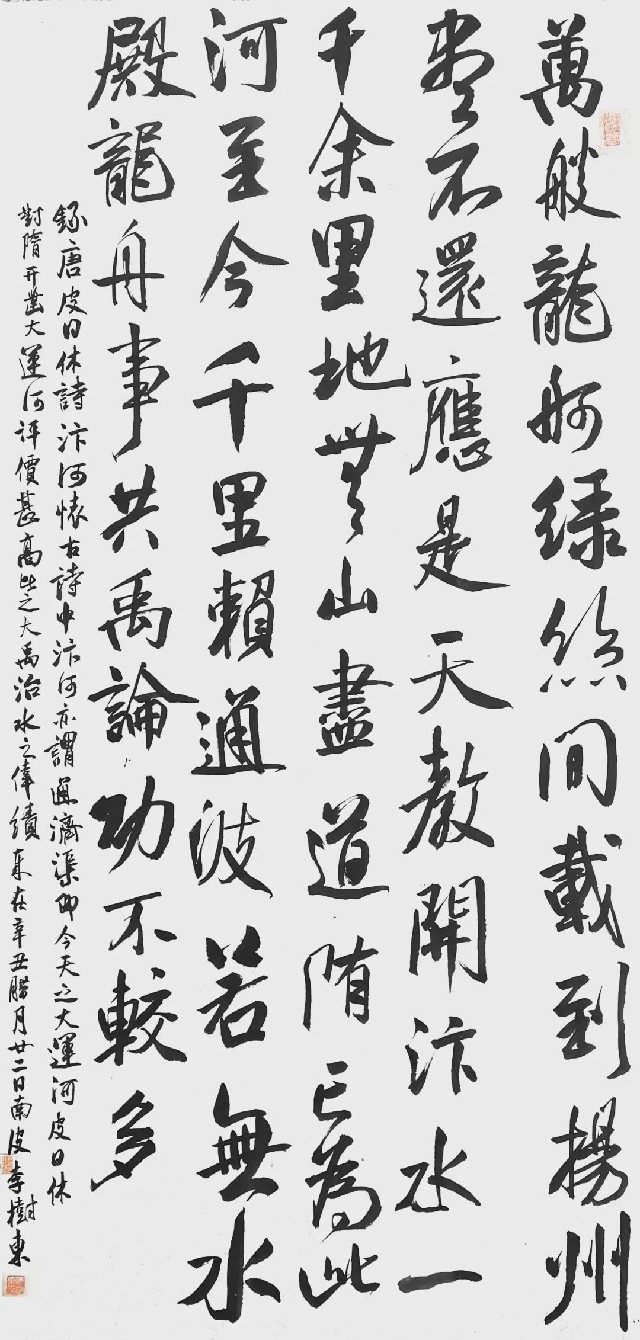 萬艘龍舸綠絲間載到揚州
盡不還應是天教開汴水一
千余里地無山盡道隋亡為此
河至今千里賴通波若無水
殿龍舟事共禹論功不較多
錄唐皮日休詩汴河懷古詩中汴河亦謂通濟渠即今天之大運河皮日休
對隋開鑿大運河評價甚高比之大禹治水之偉績 在辛丑臘月廿二日南皮李樹東